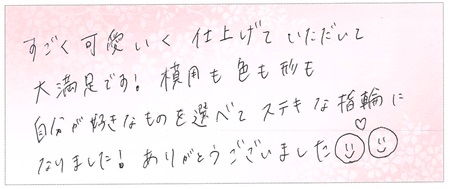 すごく可愛いく仕上げていただいて
大満足です! 模用も色も形も
自分が好きなものを選べてステキな指輪に
なりました! ありがとうございました